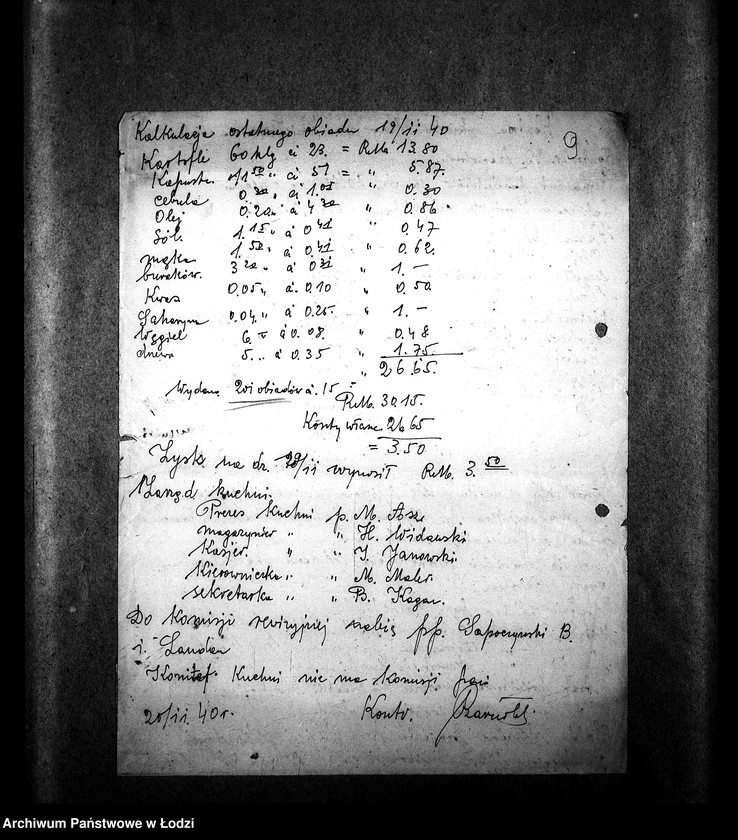 9
Kalkulacja ostatniego obiadu 19/11 40
Kartofle 60 klg á 23. = RMk 13.80
Kapusta " á 51 = " 5.87
cebula 0.30 " á 1.01 " 0.30
Olej 0.20 " á 4.30 " 0.86
Sól. 1.15 " á 0.41 " 0.47
mąka 1.50 " á 0.41 " 0.62.
buraków. 3.20 " á 0.31 " 1.—
Kwas 0.05 " á 0.10 " 0.50
Saharyna 0.04 " á 0.25. " 1.—
Węgiel 6 " á 0.08. " 0.48
drzewo 5... á 0.35 " 1.75.
" 26.65.
Wydano 201 obiadów á .15 =
RMk. 30.15.
Koszty własne 26.65
= 3.50
Zysk na dz. /11 wynosił RMk. 3.50
Zarząd kuchni.
Prezes kuchni p. M.
magazynier " " H. Widawski
Kasjer. " " J. Janowski.
Kierowniczka " " M. Maler.
sekretarka " " B. Kagan.
Do komisji rewizyjnej należą pp. Sapoczyński B.
i. Landau
Komitet. Kuchni nie ma komisji
20/11. 40 r. Kontr.
Archiwum Państwowe w Łodzi